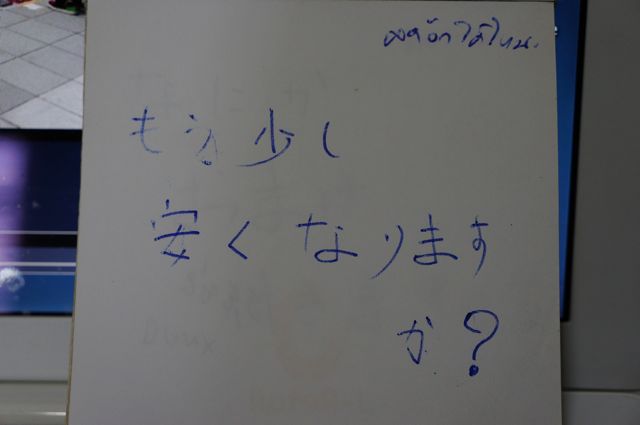 ลดอีกได้ไหม
もう少し
安くなります
か?